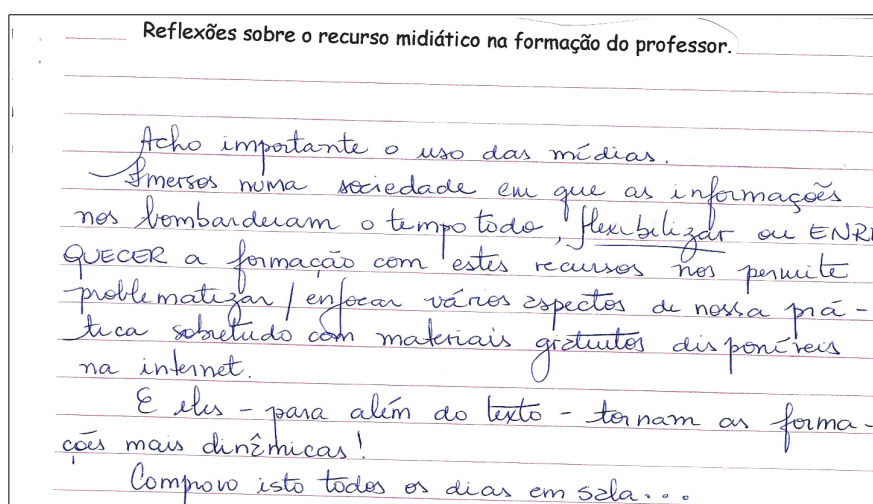 Reflexões sobre o recurso midiático na formação do professor.
Acho importante o uso das mídias.
Imersos numa sociedade em que as informações
nos bombardeiam o tempo todo, flexibilizar ou ENRI
QUECER a formação com estes recursos nos permite
problematizar / enfocar vários aspectos de nossa prá-
tica sobretudo com materiais gratuitos disponíveis
na internet.
E eles - para além do texto - tornam as forma-
ções mais dinâmicas!
Comprovo isto todos os dias em sala...